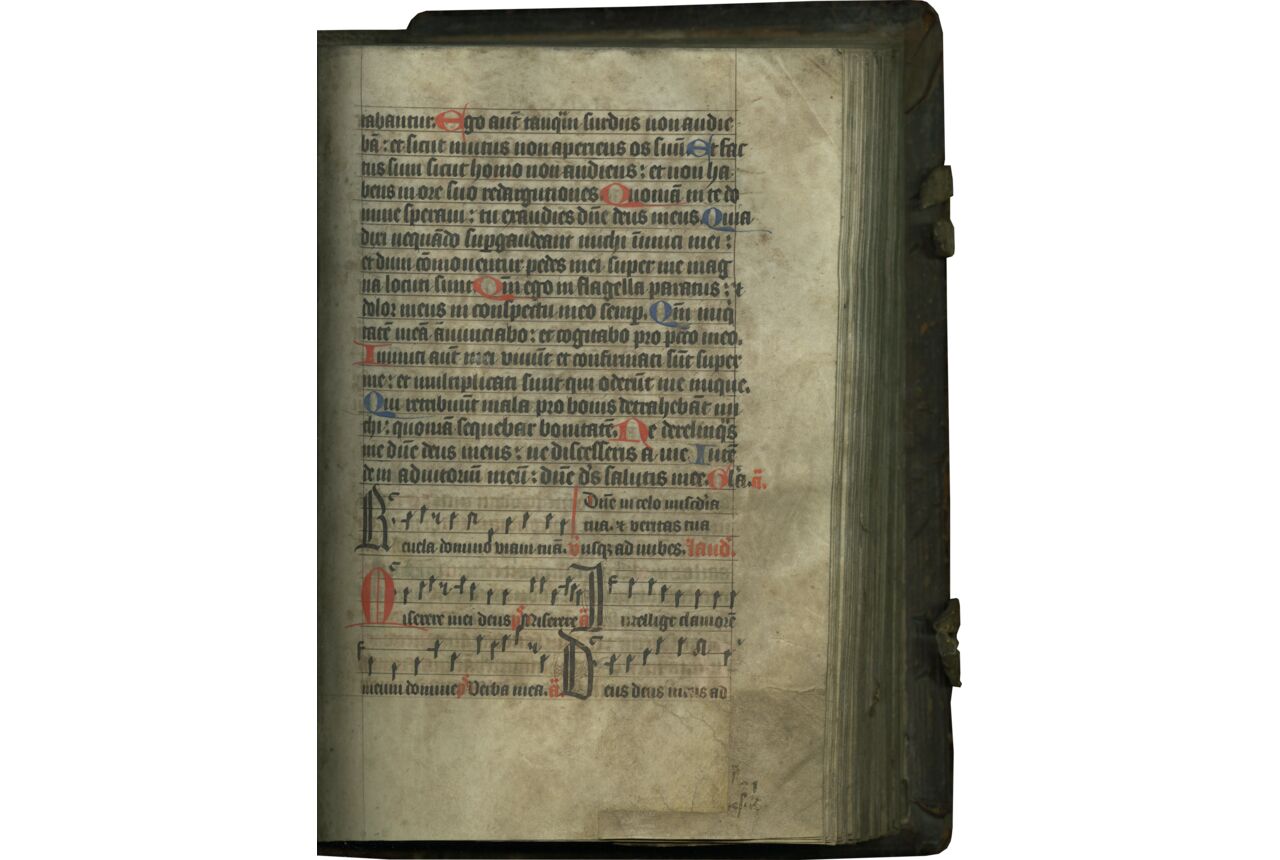 tabantur. Ego aut̄ tanq̄m surdus non audie
bā : et sicut mutus non aperiens os suū. Et fac
tus sum sicut homo non audiens : et non ha
bens in ore suo redargutiones. Quoniā in te do
mine speraui : tu exaudies dn̄e deus meus. Quia
dixi nequādo suꝑgaudeant michi inimici mei :
et dum cōmouentur pedes mei super me mag
na locuti sunt. Qm̄ ego in flagella paratus : ⁊
dolor meus in conspectu meo semꝑ. Qm̄ iniq̄
tatē meā ānunciabo : et cogitabo pro pctō meo.
Inimici aut̄ mei viuūt et confirmati sūt super
me : et multiplicati sunt qui oderūt me inique.
Qui retribuūt mala pro bonis detrahebāt mi
chi : quoniā sequebar bonitatē. Ne derelinq̄s
me dn̄e deus meus : ne discesseris a me. Intē
de in adiutoriū meū : dn̄e ds̄ salutis mee. Gla. a̅.
Dn̄e in celo misc̄dia
tua. ⁊ veritas tua
Reuela domino viam tuā. v̄ usqꝫ ad nubes. laud̄.
Miserere mei deus p̄s Miserere a̅ Intellige clamorē
meum domine p̄s Verba mea. a̅ Deus deus meus ad